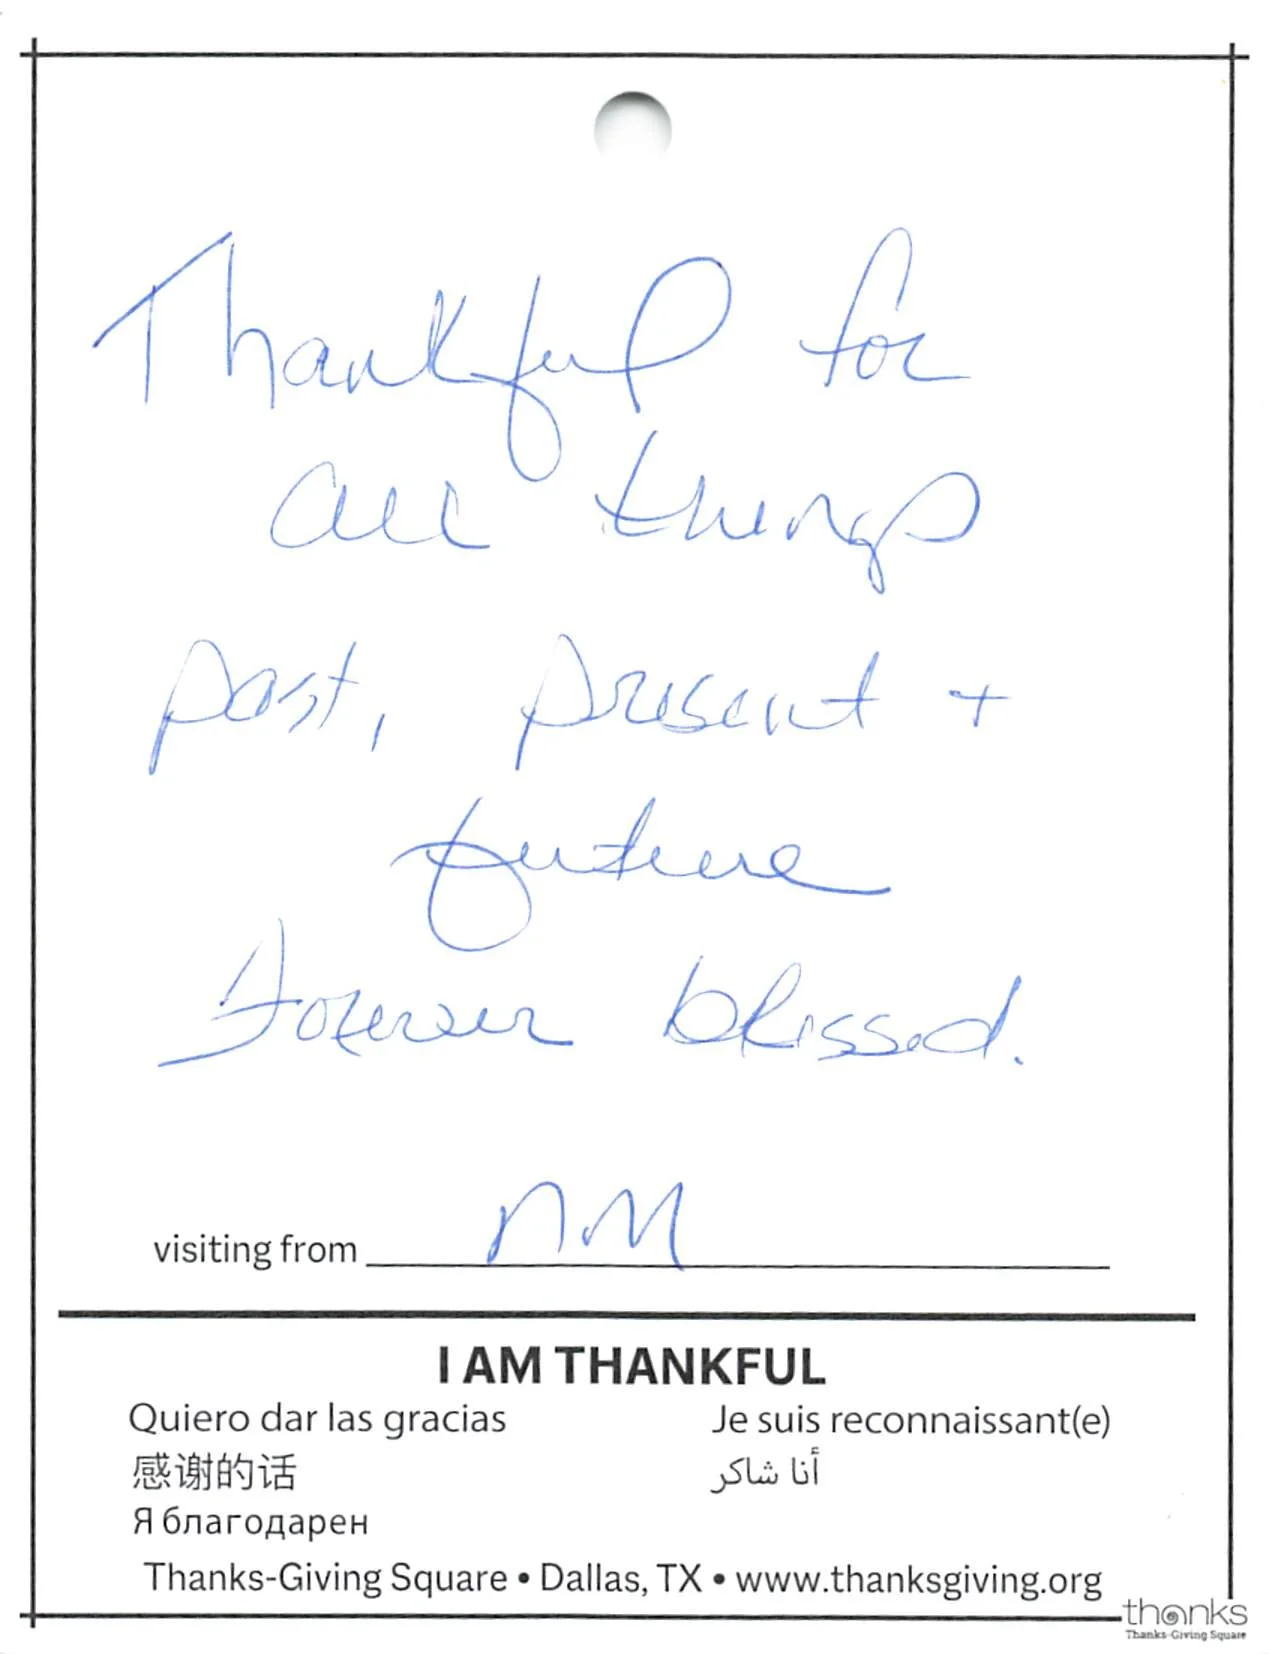 Thankful for
all things
past, present +
future
Forever blessed.
visiting from N.M
I AM THANKFUL
Quiero dar las gracias
Je suis reconnaissant(e)
感谢的话
أنا شاكر
Я благодарен
Thanks-Giving Square • Dallas, TX • www.thanksgiving.org
thanks
Thanks-Giving Square